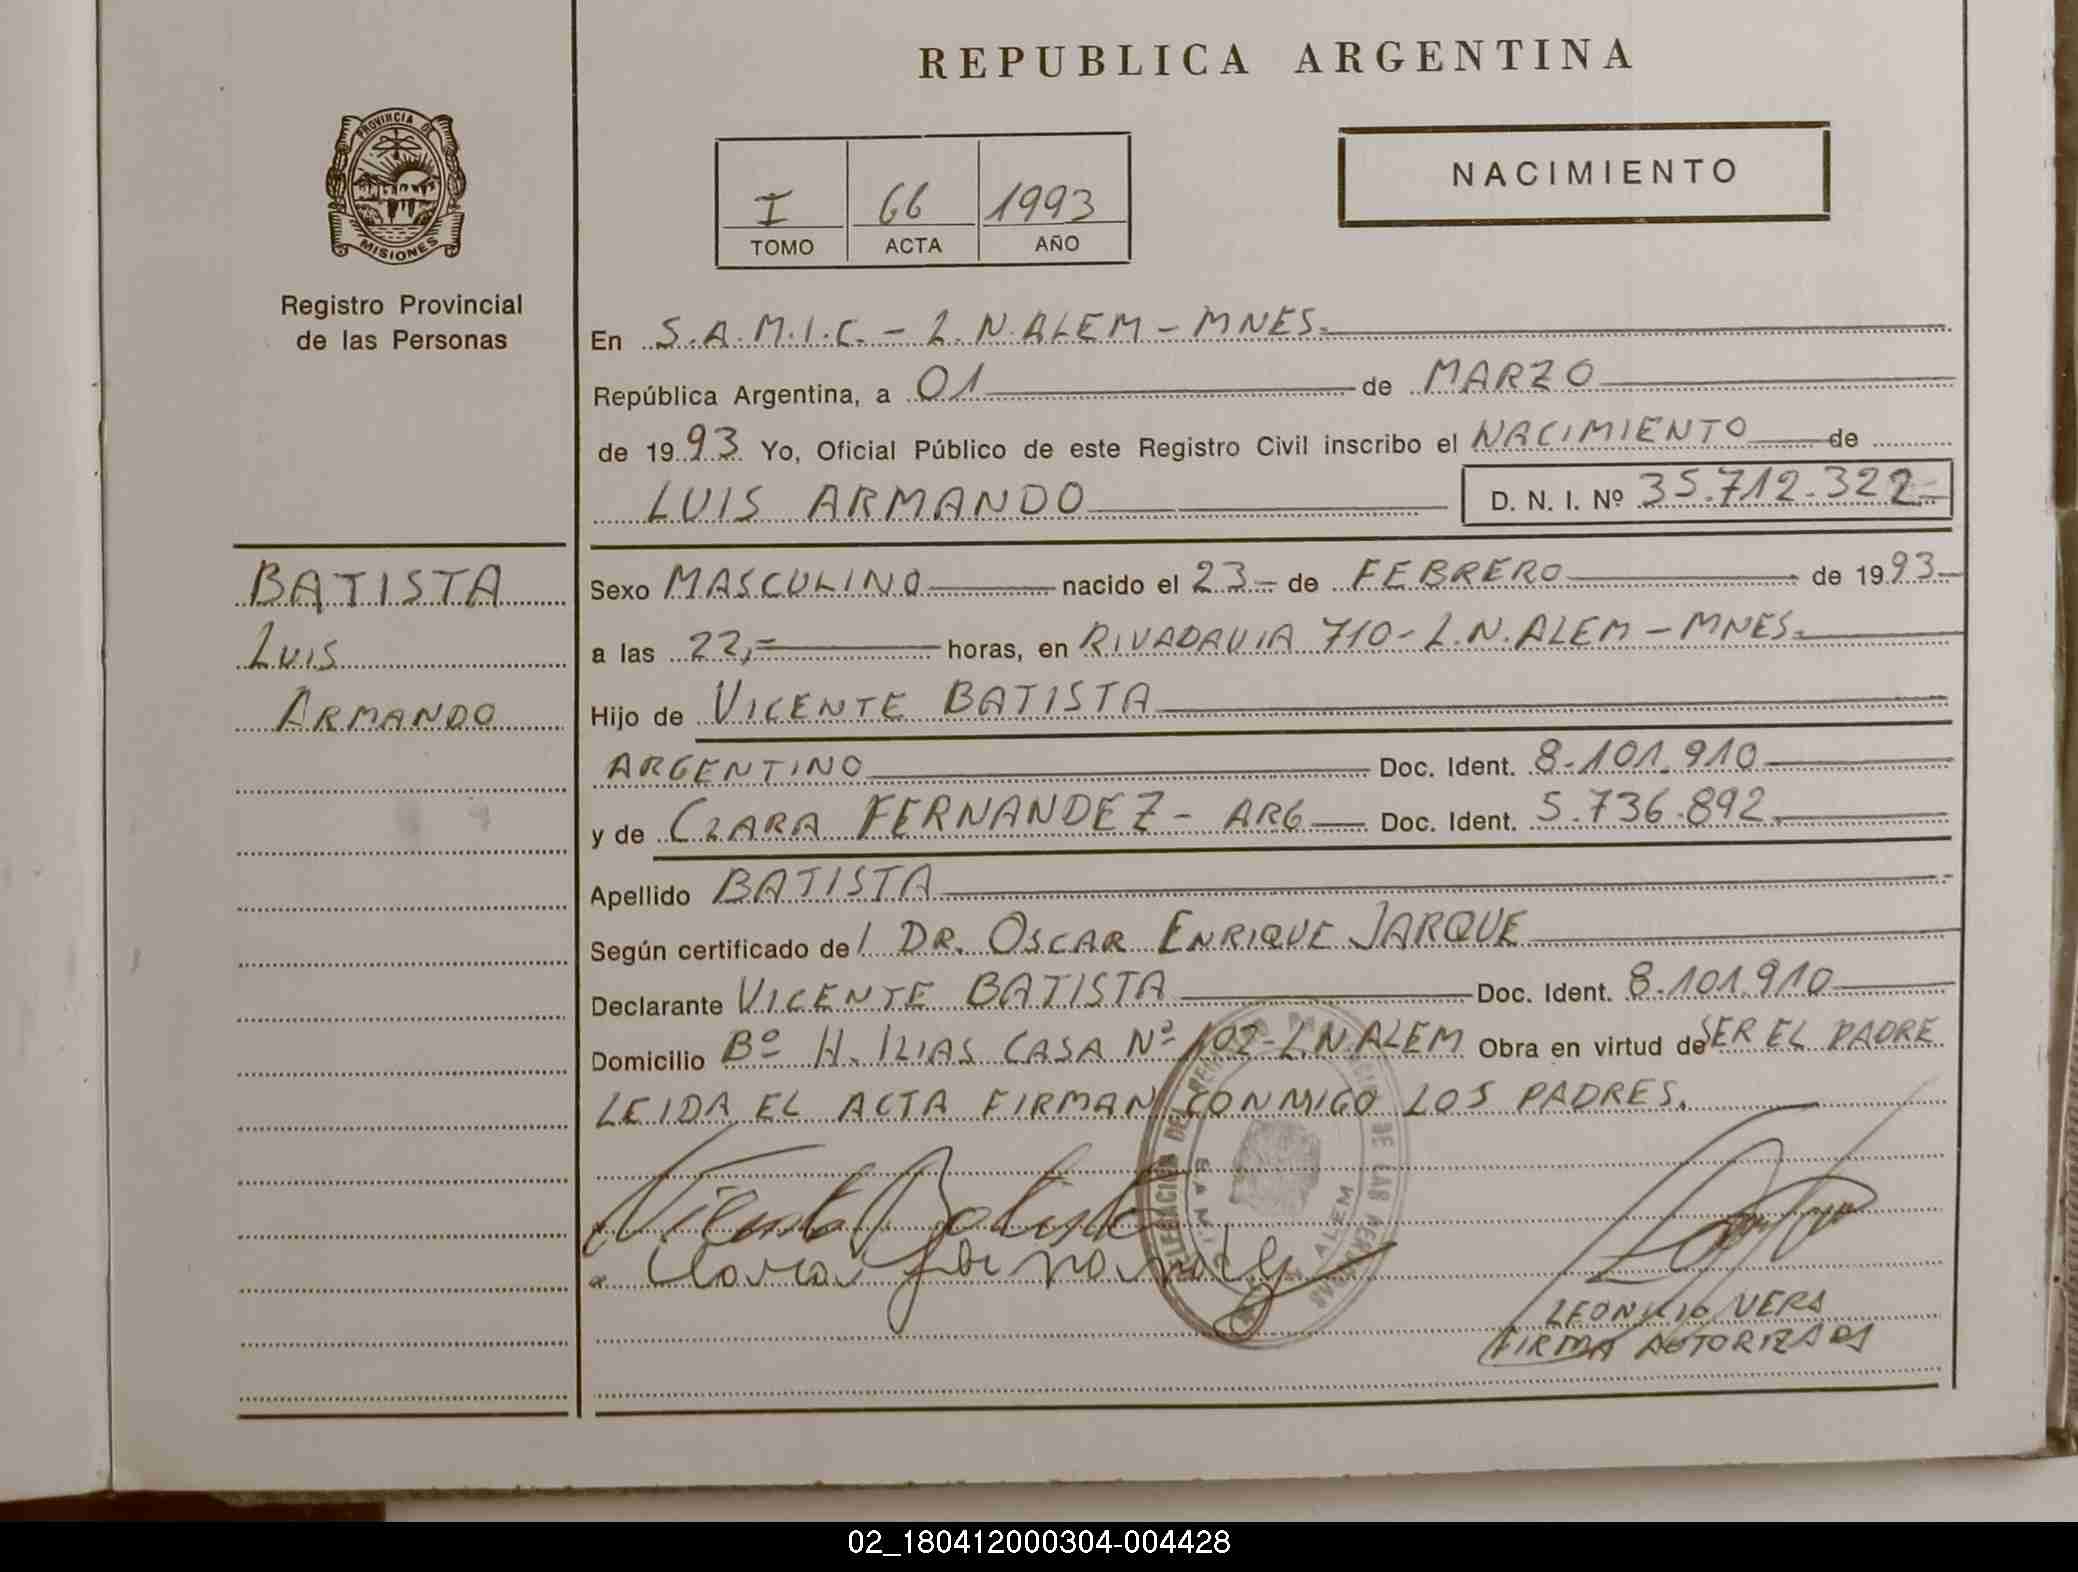 REPUBLICA ARGENTINA
PROVINCIA DE
MISIONES
Registro Provincial
de las Personas
I 66 1993
TOMO ACTA AÑO
NACIMIENTO
En S.A.M.I.C. - L.N.ALEM - MNES.
República Argentina, a 01 de MARZO
de 1993 Yo, Oficial Público de este Registro Civil inscribo el NACIMIENTO de
LUIS ARMANDO D. N. I. Nº 35.712.322-
BATISTA
LUIS
ARMANDO
Sexo MASCULINO nacido el 23- de FEBRERO de 1993-
a las 22,= horas, en RIVADAVIA 710 - L.N.ALEM - MNES.
Hijo de VICENTE BATISTA
ARGENTINO Doc. Ident. 8.101.910
y de CLARA FERNANDEZ - ARG Doc. Ident. 5.736.892.
Apellido BATISTA
Según certificado de l DR. OSCAR ENRIQUE JARQUE
Declarante VICENTE BATISTA Doc. Ident. 8.101.910
Domicilio Bº H. ILIAS CASA Nº 102-L.N.ALEM Obra en virtud de SER EL PADRE
LEIDA EL ACTA FIRMAN CONMIGO LOS PADRES.
Vicente Batista
Clara fernandez
DE LAS
ALEM
VERA
FIRMA AUTORIZADA
02_180412000304-004428